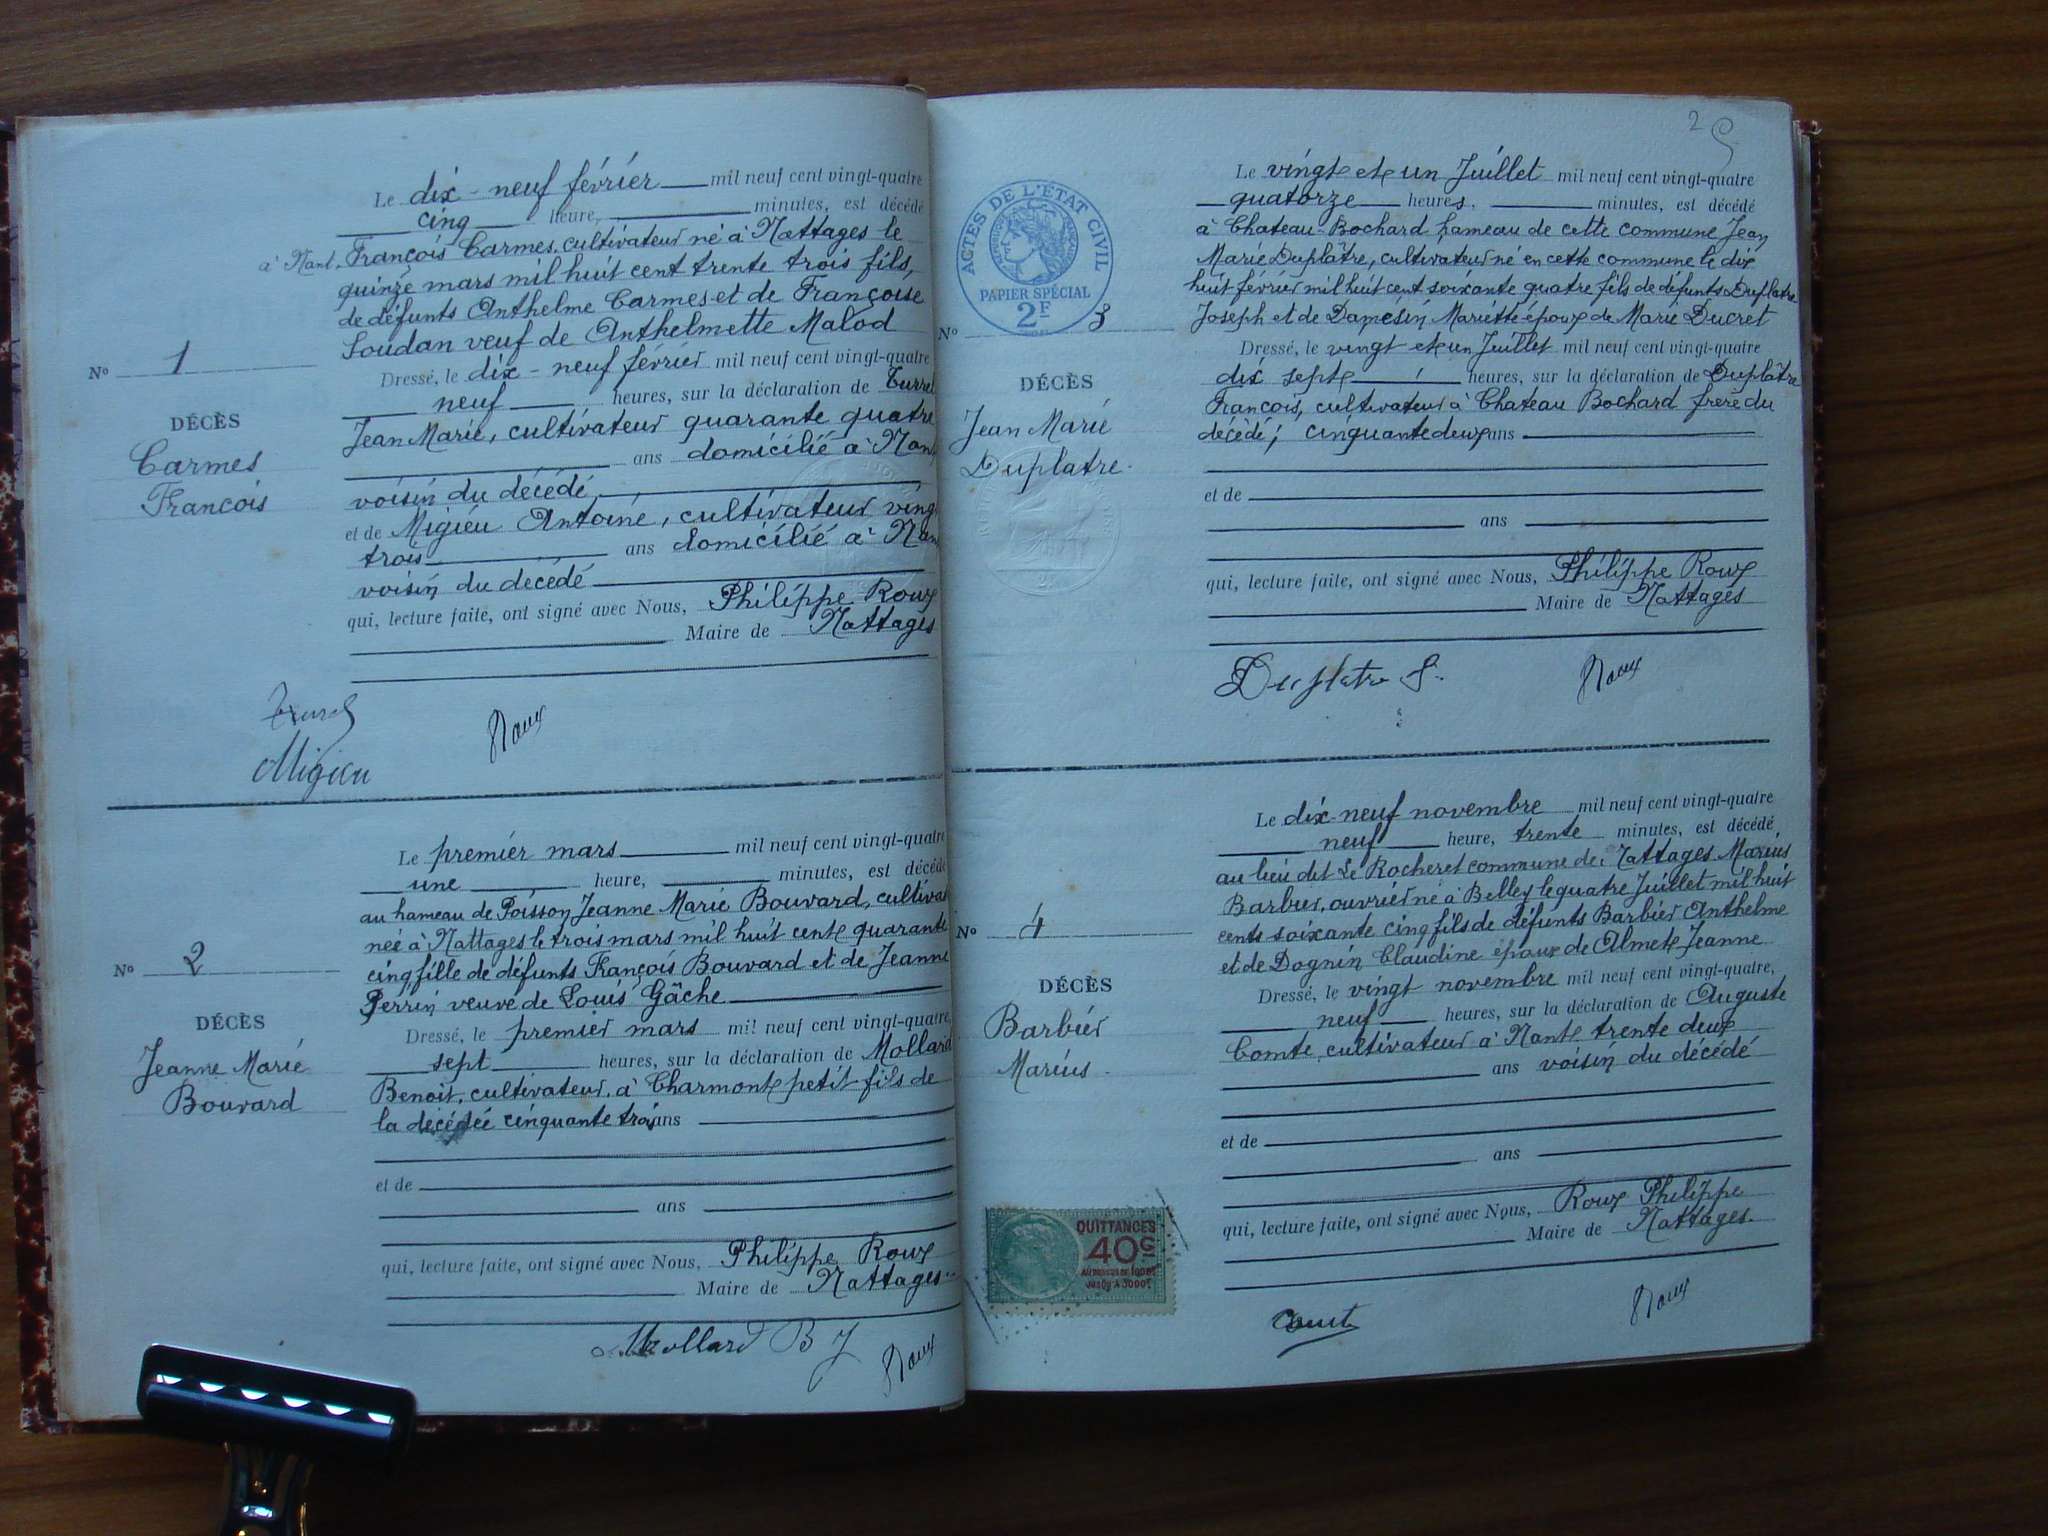 Le dix-neuf février mil neuf cent vingt-quatre
cinq heure, minutes, est décédé
à Nant, François Carmes, cultivateur né à Nattages le
quinze mars mil huit cent trente trois fils,
de défunts Anthelme Carmes et de Françoise
Soudan veuf de Anthelmette Malod
Nº 1
Dressé, le dix-neuf février mil neuf cent vingt-quatre
neuf heures, sur la déclaration de Turrel
DÉCÈS
Carmes
François
Jean Marie, cultivateur quarante quatre
ans domicilié à Nant
voisin du décédé
et de Migieu Antoine, cultivateur vingt
trois ans domicilié à Nant
voisin du décédé
qui, lecture faite, ont signé avec Nous, Philippe Roux
Maire de Nattages
Roux
Migieu
Le premier mars mil neuf cent vingt-quatre
une heure, minutes, est décédé
au hameau de Poisson Jeanne Marie Bouvard, cultivat
née à Nattages le trois mars mil huit cent quarante
Nº 2
cinq fille de défunts François Bouvard et de Jeanne
Perrin veuve de Louis Gâche
DÉCÈS
Jeanne Marie
Bouvard
Dressé, le premier mars mil neuf cent vingt-quatre,
sept heures, sur la déclaration de Mollard
Benoit, cultivateur, à Charmont petit fils de
la décédée cinquante trois ans
et de
ans
qui, lecture faite, ont signé avec Nous, Philippe Roux
Maire de Nattages
Mollard B J
Roux
2
ACTES DE L'ÉTAT CIVIL
PAPIER SPÉCIAL
2F
Le vingt et un Juillet mil neuf cent vingt-quatre
quatorze heures, minutes, est décédé
à Chateau-Bochard hameau de cette commune Jean
Marie Duplâtre, cultivateur né en cette commune le dix
huit février mil huit cent soixante quatre fils de défunts Duplatre
Nº 3
Joseph et de Damesin Mariette époux de Marie Ducret
DÉCÈS
Jean Marie
Duplatre.
Dressé, le vingt et un Juillet mil neuf cent vingt-quatre
dix sept heures, sur la déclaration de Duplâtre
François, cultivateur à Chateau Bochard frère du
décédé; cinquante deux ans
et de
ans
qui, lecture faite, ont signé avec Nous, Philippe Roux
Maire de Nattages
Duplatre F.
Roux
Le dix-neuf novembre mil neuf cent vingt-quatre
neuf heure, trente minutes, est décédé
au lieu dit Le Rocheret commune de Nattages Marius
Barbier, ouvrier né à Belley le quatre Juillet mil huit
Nº 4
cents soixante cinq fils de défunts Barbier Anthelme
et de Dognin Claudine époux de Almet Jeanne
DÉCÈS
Barbier
Marius.
Dressé, le vingt novembre mil neuf cent vingt-quatre,
neuf heures, sur la déclaration de Auguste
Comte, cultivateur à Nant trente deux
ans voisin du décédé
et de
ans
qui, lecture faite, ont signé avec Nous, Roux Philippe
Maire de Nattages.
Roux
QUITTANCES
40c
JUSQU'À 3000F